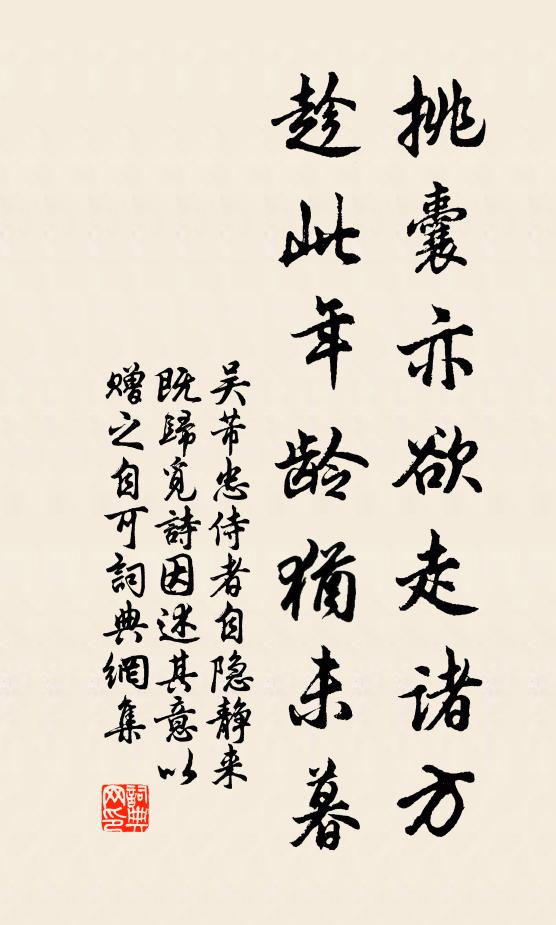 挑囊亦欲走诸方
趁此年龄犹未暮
吴芾忠侍者自隐静来
既歸覓詩因述其意以
赠之自可詞典網集
詞典网印